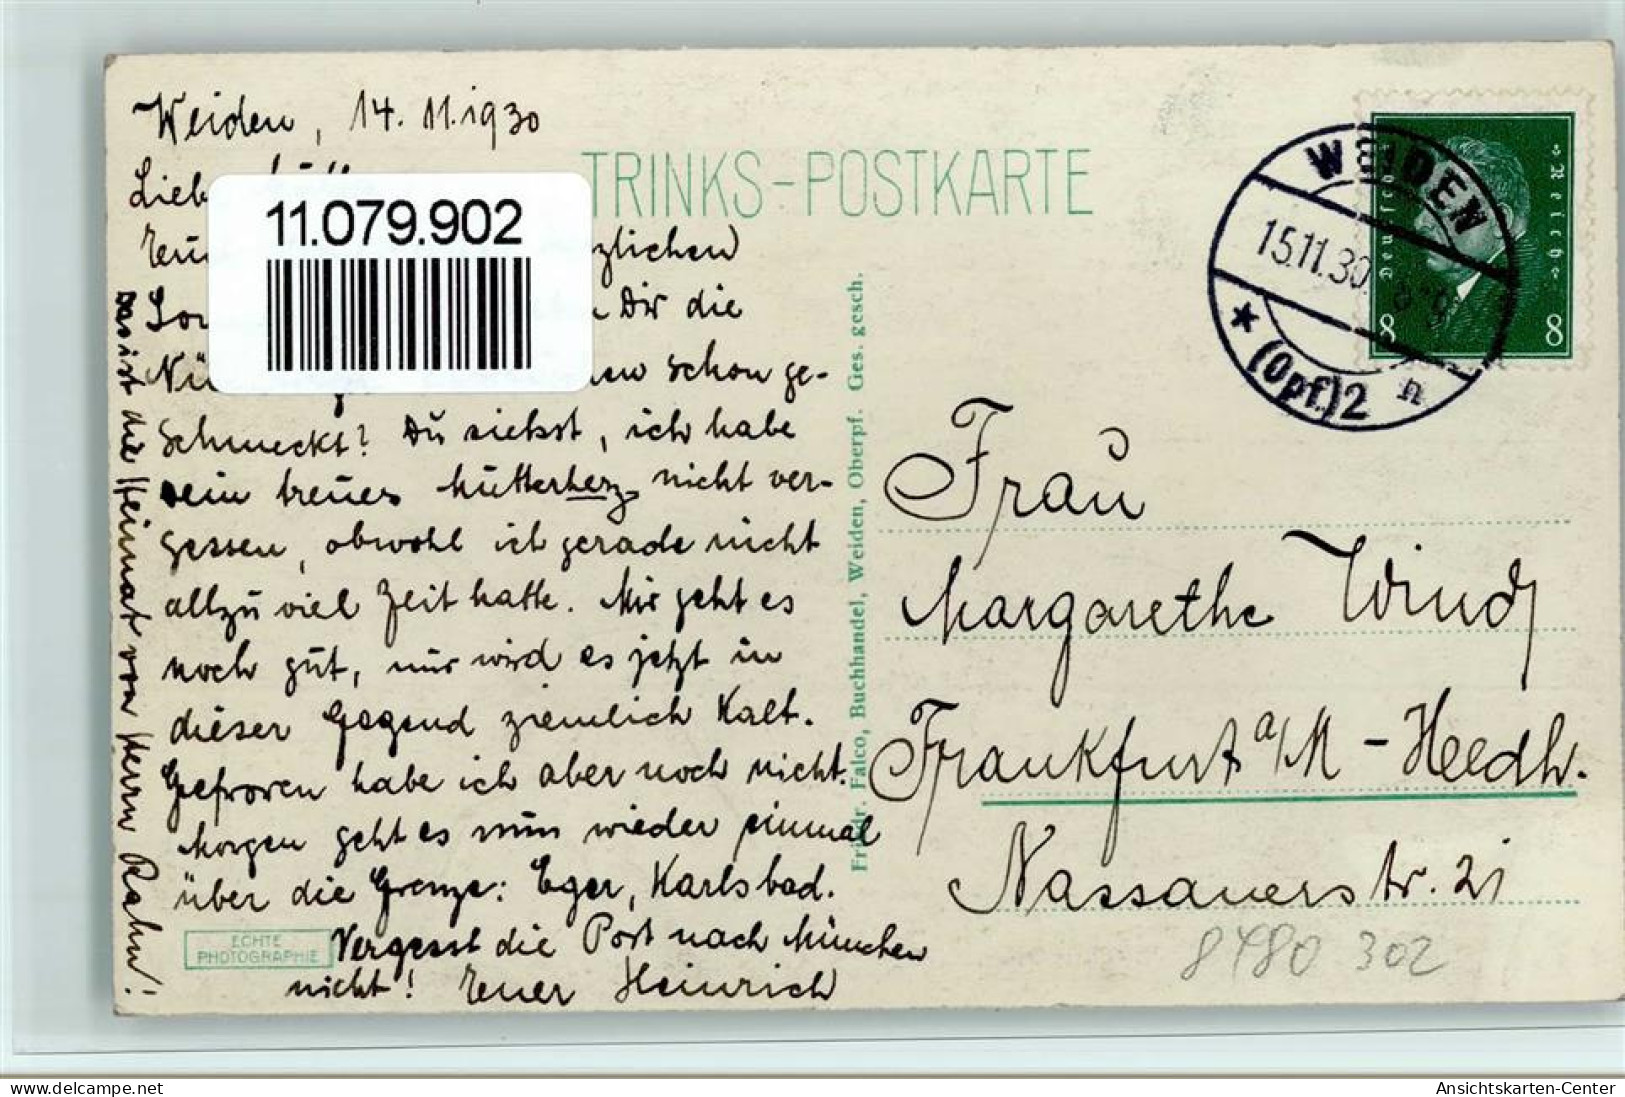 Weiden, 14.11.1930
TRINKS-POSTKARTE
Lieb
11.079.902
zlichen
Dir die
schon ge-
schmeckt? Du siehst, ich habe
ein treues Mutterherz nicht ver-
gessen, obwohl ich gerade nicht
allzu viel Zeit hatte. Mir geht es
noch gut, nur wird es jetzt in
dieser Gegend ziemlich kalt.
Gefroren habe ich aber noch nicht.
Morgen geht es nun wieder einmal
über die Grenze: Eger, Karlsbad.
Vergesst die Post nach München
nicht! Euer Heinrich
Das ist die Heimat von Herrn Rahm!
ECHTE
PHOTOGRAPHIE
Friedr. Falco, Buchhandel, Weiden, Oberpf. Ges. gesch.
WEIDEN
15.11.30
(Opf.)2 n
Deutsches Reich
8 8
Frau
Margarethe Windj
Frankfurt a/M - Heddh.
Nassauerstr. 21
8480 302
Ansichtskarten-Center
https://www.ansichtskarten-center.de/